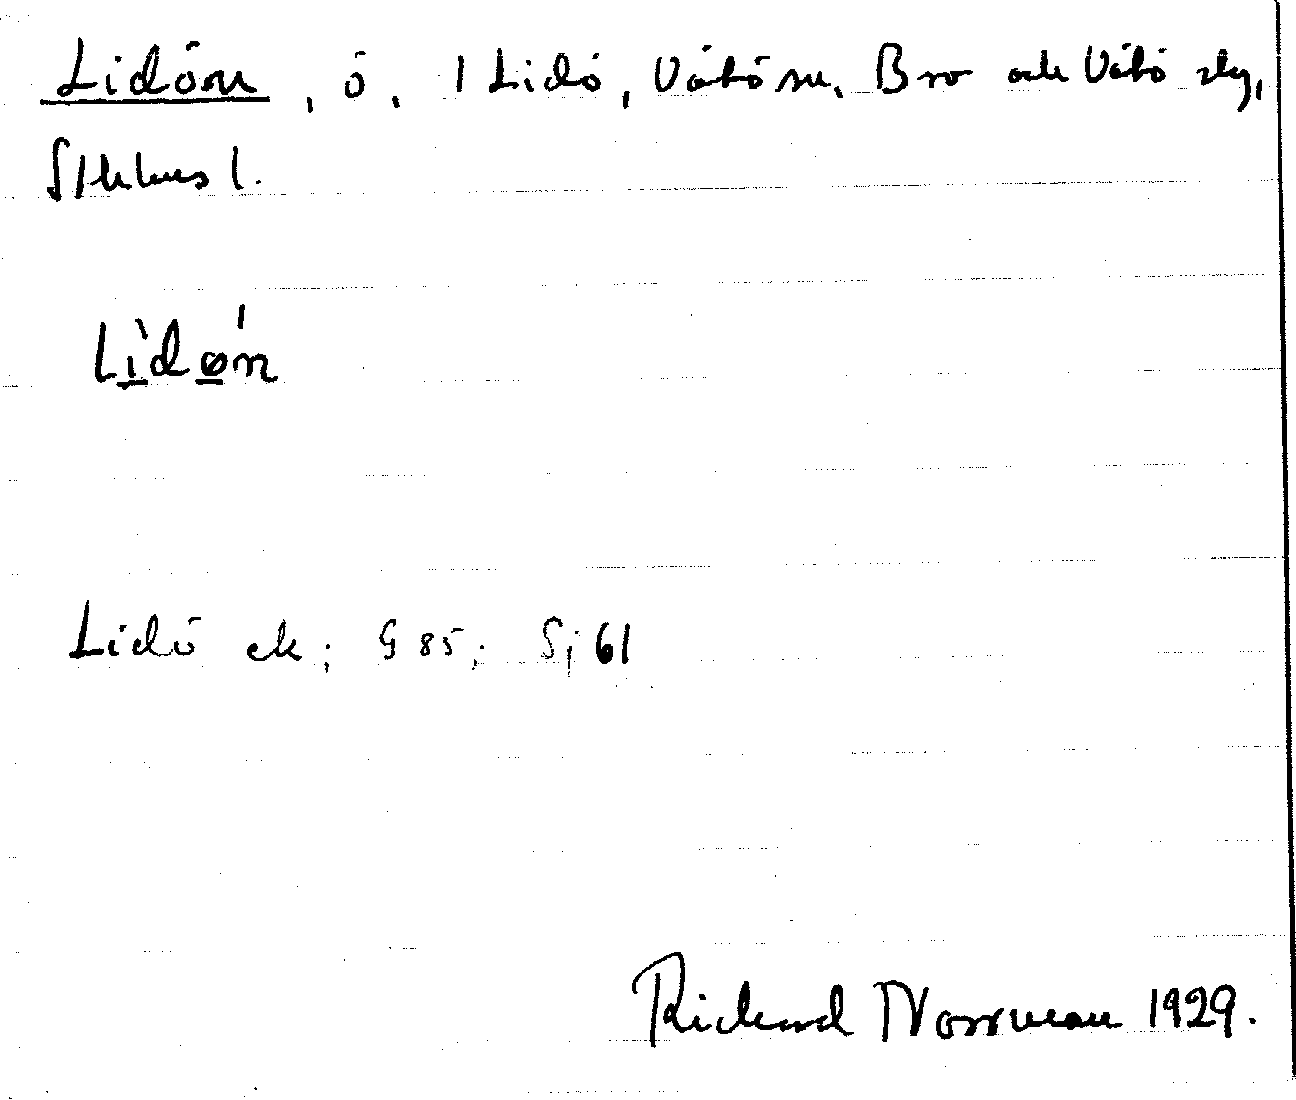 Lidön, ö, 1 Lidö, Vätö sn, Bro och Vätö slg,
Sthlms l.
Lìdø̀n
Lidö ek; G 85; Sj 61
Richard Norrman 1929.